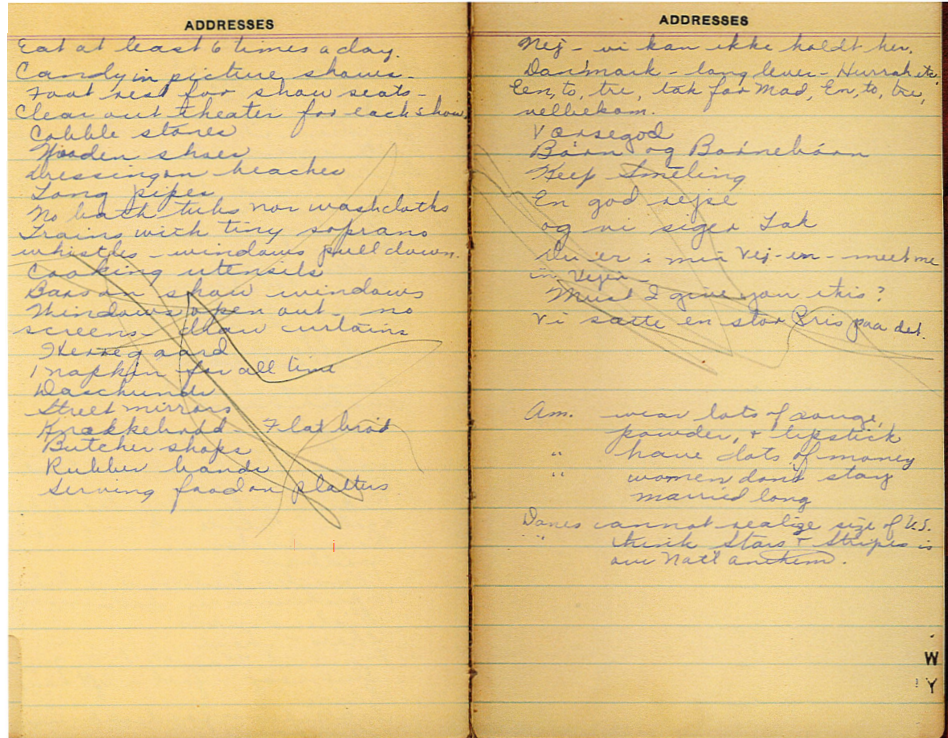 ADDRESSES
Eat at least 6 times a day.
Candy in picture shows -
Foot rest for show seats -
Clear out theater for each show
Cobble stones
Wooden shoes
Dressing on beaches
Long pipes
No bath tubs nor washcloths
Trains with tiny soprano
whistles - windows pull down.
Cooking utensils
Bars on show windows
Windows open out - no
screens - draw curtains
Herregaard
1 napkin for all time
Daschunds
Street mirrors
Knakkebröd Flatbröd
Butcher shops
Rubber bands
Serving food on platters
ADDRESSES
Nej - vi kan ikke holdt her.
Danmark - lang lever - Hurrah etc.
Een, to, tre, tak for Mad, En, to, tre,
velbekom.
Værsegod
Börn og Börnebörn
Keep Smiling
En god rejse
og vi siger Tak
Du er i min Vej-en - meet me
in Vejen -
Must I give you this?
Vi sætte en stor Pris paa det.
Am. wear lots of rouge,
powder, + lipstick
" have lots of money
" women don't stay
married long
Danes cannot realize size of U.S.
" think Stars + Stripes is
our Nat'l anthem.
W
Y